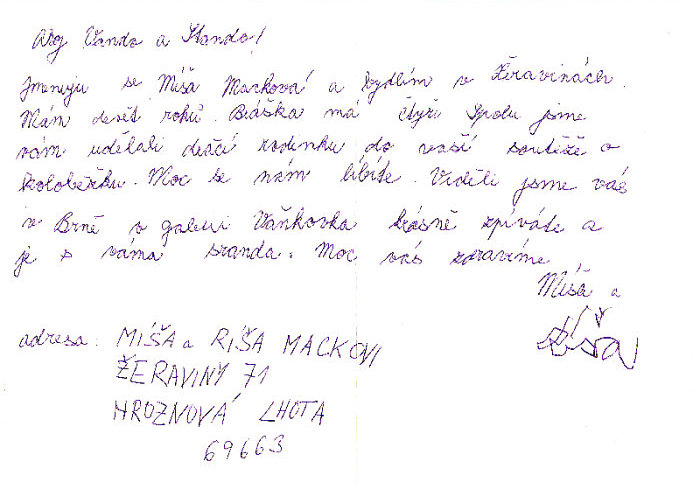 Ahoj Vando a Stando!
Jmenuju se Míša Macková a bydlím v Žeravinách.
Mám deset roků. Bráška má čtyři Spolu jsme
vám udělali dračí rodinku do vaší soutěže o
koloběžku. Moc se nám líbíte. Viděli jsme vás
v Brně v galerii Vaňkovka krásně zpíváte a
je s váma sranda. Moc vás zdravíme
Míša a
Ríša
adresa: MÍŠA a RÍŠA MACKOVI
ŽERAVINY 71
HROZNOVÁ LHOTA
69663